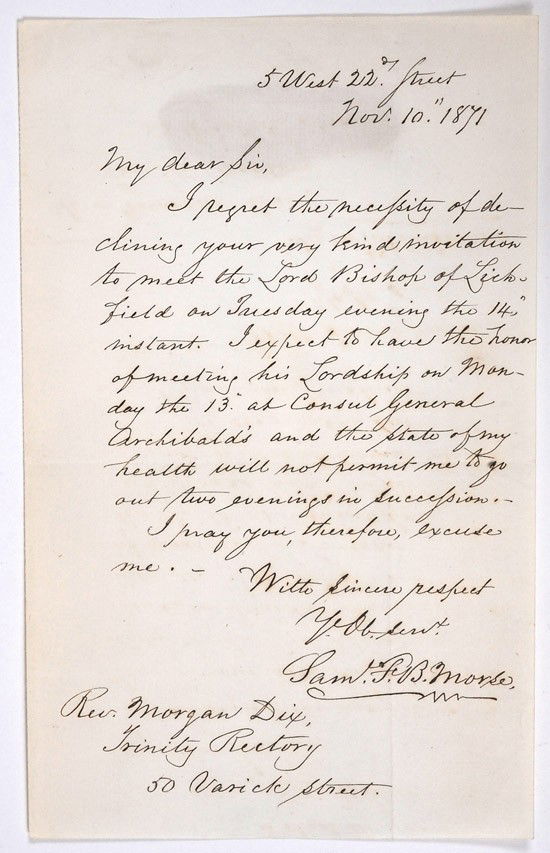 5 West 22d. Street
Nov. 10." 1871
My dear Sir,
I regret the necessity of de-
clining your very kind invitation
to meet the Lord Bishop of Lich-
field on Tuesday evening the 14"
instant. I expect to have the honor
of meeting his Lordship on Mon-
day the 13" at Consul General
Archibald's and the state of my
health will not permit me to go
out two evenings in succession.-
I pray you, therefore, excuse
me. -
With sincere respect
Yr. Ob. servt.
Saml. F. B. Morse,
Rev. Morgan Dix,
Trinity Rectory
50 Varick street.